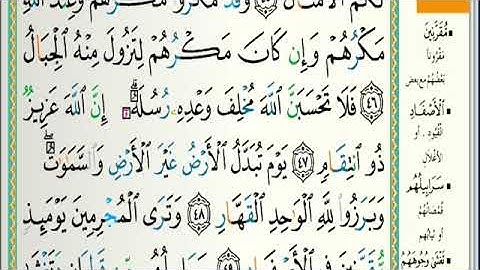 لَكُمُ الْأَمْثَالَ ٤٥ وَقَدْ مَكَرُوا۟ مَكْرَهُمْ وَعِندَ ٱللَّهِ
مَكْرُهُمْ وَإِن كَانَ مَكْرُهُمْ لِتَزُولَ مِنْهُ ٱلْجِبَالُ
٤٦ فَلَا تَحْسَبَنَّ ٱللَّهَ مُخْلِفَ وَعْدِهِۦ رُسُلَهُۥٓ ۗ إِنَّ ٱللَّهَ عَزِيزٌ
ذُو ٱنتِقَامٍ ٤٧ يَوْمَ تُبَدَّلُ ٱلْأَرْضُ غَيْرَ ٱلْأَرْضِ وَٱلسَّمَٰوَٰتُ ۖ
وَبَرَزُوا۟ لِلَّهِ ٱلْوَٰحِدِ ٱلْقَهَّارِ ٤٨ وَتَرَى ٱلْمُجْرِمِينَ يَوْمَئِذٍ
مُّقَرَّنِينَ فِى ٱلْأَصْفَادِ ٤٩ سَرَابِيلُهُم مِّن قَطِرَانٍ وَتَغْشَىٰ
مُقَرَّنِينَ
مَقْرُوناً
بَعْضُهُمْ مَعَ بَعْضٍ
الْأَصْفَادِ
الْقُيُودِ . أو
الْأَغْلَالِ
سَرَابِيلُهُم
قُمْصَانُهُمْ
أو ثِيَابُهُمْ
تَغْشَى وُجُوهَهُمُ